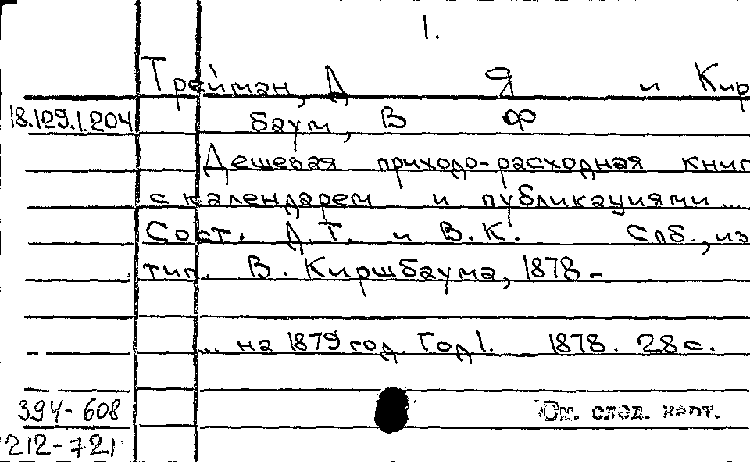 1.
Трейман, Д Я и Кир
18.129.1.204 баум, В Ф
Дешевая приходо-расходная книг
с календарем и публикациями...
Сост. Д.Т. и В.К. Спб., из
тип. В. Киршбаума, 1878-
... на 1879 год. Год 1. 1878. 28 с.
394-608 См. след. карт.
212-721